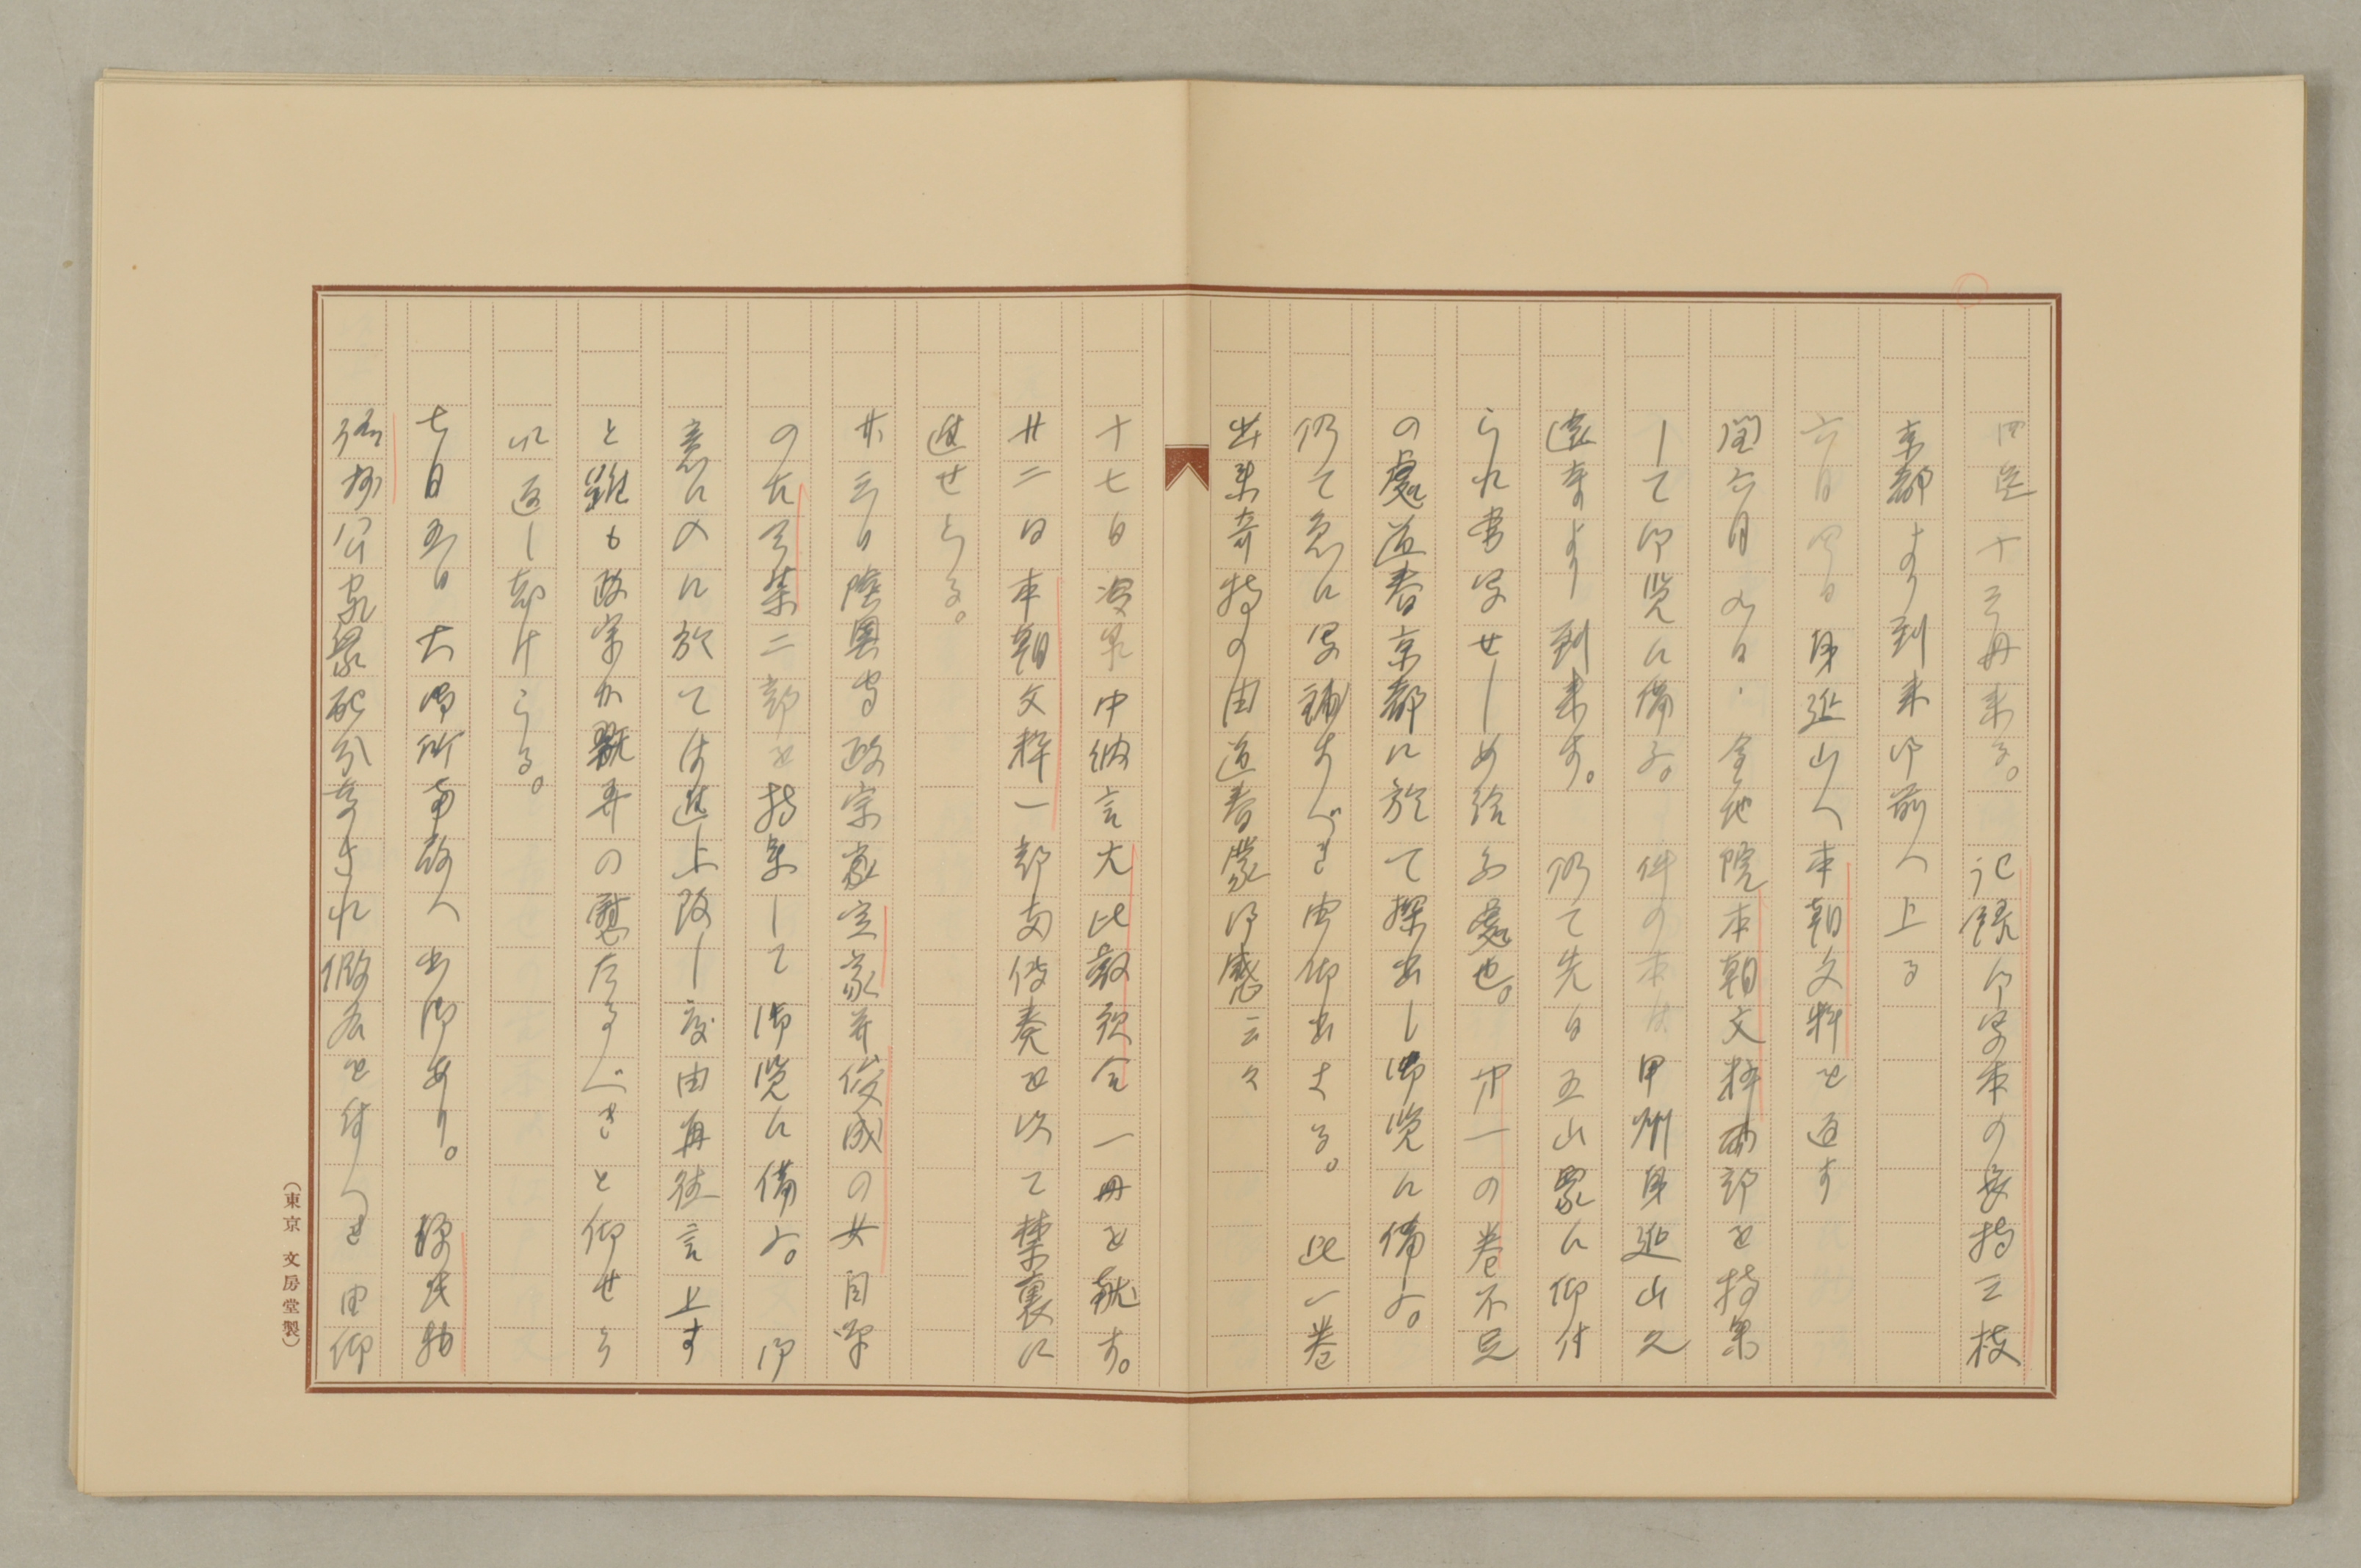 四箆十三冊来る。　記録御写本の長持三枝
京都より到来御前へ上る
六日 今日身延山へ本朝文粋を返す
閏六月 金地院本朝文粋両部を持来
して御覧に備ふ。件の本は甲州身延山久
遠寺より到来す。仍て先日五山衆に仰付
られ書写せしめ給ふ處也。第一の巻不足
の處道春京都に於て探出し御覧に備ふ。
仍て急に写補すべき由仰出さる。此一巻
出来奇特の由道春蒙御感云々
十七日 中納言大比叡一冊を献す。
廿二日 本朝文粋一部南伝奏を以て禁裏に
進せらる。
廿三日 陸奥守政宗家定家并俊成の女自筆
の古今集二部を持参して御覧に備ふ。御
意に入に於ては進上致し度由再往言上す
と雖も政宗が翫弄の慰たるべきと仰せら
れ返し却けらる。
七日 大御所南殿へ出御あり。源氏物
公家衆配分 假名を付くべき由仰
（東京 文房堂製）